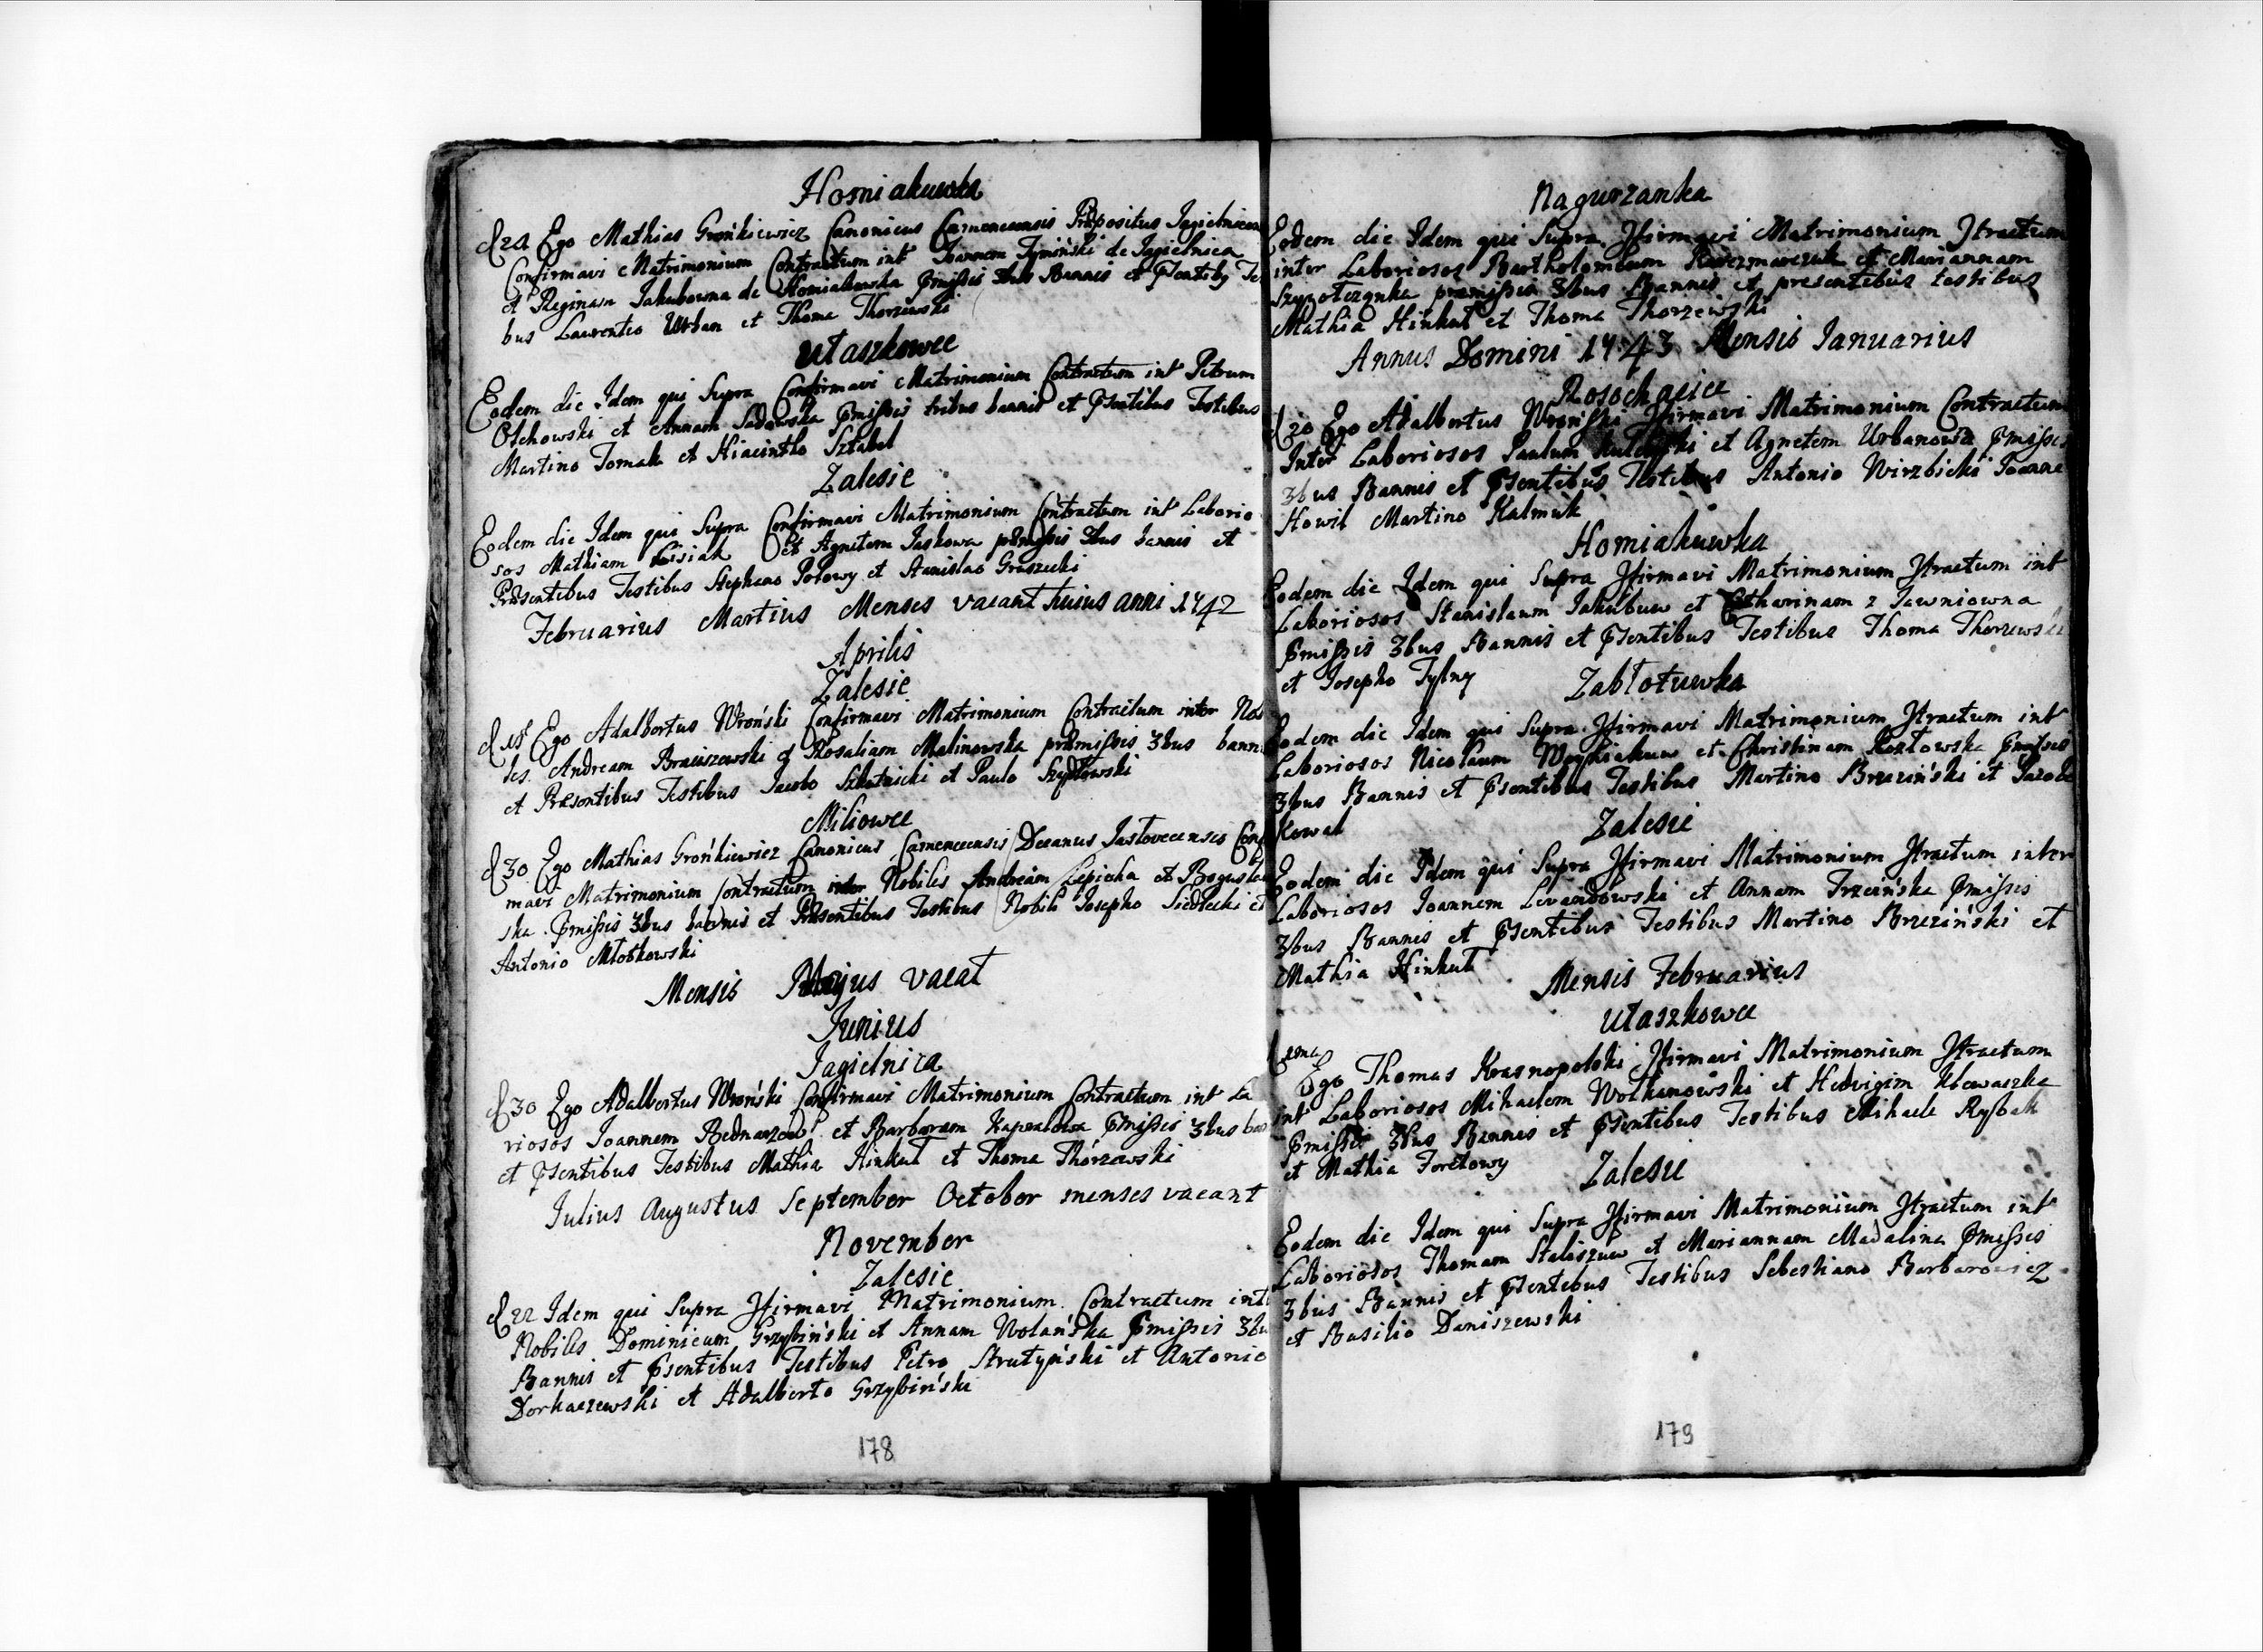 Homiakuwka
d 24 Ego Mathias Grońkiewicz Canonicus Camenecensis Præpositus Jagielnicen
Confirmavi Matrimonium Contractum int Joannem Tymiński de Jagielnica
et Reginam Jakubowna de Homiakowka Pmissis 3bus Bannis et Psentiby Tes
bus Laurentio Urban et Thoma Thorzewski
Utaszkowce
Eodem die Idem qui Supra Confirmavi Matrimonium Contractum int Petrum
Olchowski et Annam Sadowska Pmissis tribus bannis et Psentibus Testibus
Martino Tomak et Hiacintho Sztabel
Zalesie
Eodem die Idem qui Supra Confirmavi Matrimonium Contractum int Laborio
sos Mathiam Lisiak et Agnetem Jaskowa præmissis 3bus bannis et
Præsentibus Testibus Stephano Połowy et Stanislao Graszecki
Februarius Martius Menses vacant huius anni 1742
Aprilis
Zalesie
d 15 Ego Adalbertus Wroński Confirmavi Matrimonium Contractum inter Nob
les Andream Braciszewski et Rosaliam Malinowska præmissis 3bus bann
et Præsentibus Testibus Jacobo Szkatnicki et Paulo Szydłowski
Miliowce
d 30 Ego Mathias Grońkiewicz Canonicus Camenecensis Decanus Jaslovecensis Conf
mavi Matrimonium Contractum inter Nobiles Andream Lepicha et Bogus
ska Pmissis 3bus bannis et Præsentibus Testibus Nobili Josepho Siedlecki et
Antonio Młotkowski
Mensis Majus vacat
Junius
Jagielnica
d 30 Ego Adalbertus Wroński Confirmavi Matrimonium Contractum int La
riosos Joannem Bednarzow et Barbaram Kapralowa Pmissis 3bus ban
et Psentibus Testibus Mathia Hinkut et Thoma Thorzewski
Julius Augustus September October menses vacant
November
Zalesie
d 22 Idem qui Supra Yfirmavi Matrimonium Contractum int
Nobiles Dominicum Grzybiński et Annam Wolańska Pmissis 3bu
Bannis et Psentibus Testibus Petro Strutyński et Antonio
Dorhaczewski et Adalberto Grzybiński
178
Nagurzanka
Eodem die Idem qui Supra Yfirmavi Matrimonium Ytractum
inter Laboriosos Bartholomeum Karczmarczuk et Mariannam
præmissis 3bus Bannis et presentibus testibus
Mathia Hinkut et Thoma Thorzewski
Annus Domini 1743 Mensis Januarius
Rosochacice
d 20 Ego Adalbertus Wroński Yfirmavi Matrimonium Contractum
Inter Laboriosos Paulum et Agnetem Urbanowa Pmissis
3bus Bannis et Psentibus Testibus Antonio Wirzbicki Joanne
Howil Martino Kalmuk
Homiakuwka
Eodem die Idem qui Supra Yfirmavi Matrimonium Ytractum int
Laboriosos Stanislaum Jakubuw et Catharinam z Jawniowna
Pmissis 3bus Bannis et Psentibus Testibus Thoma Thorzewski
et Josepho Tylny
Zabłotuwka
Eodem die Idem qui Supra Yfirmavi Matrimonium Ytractum int
Laboriosos Nicolaum et Christinam Kozłowska Pmissis
3bus Bannis et Psentibus Testibus Martino Brzeziński et Jacobo
Kowal
Zalesie
Eodem die Idem qui Supra Yfirmavi Matrimonium Ytractum inter
Laboriosos Joannem Levandowski et Annam Trzcińska Pmissis
3bus Bannis et Psentibus Testibus Martino Brzeziński et
Mathia Hinkut
Mensis Februarius
Utaszkowce
Ego Thomas Krasnopolski Yfirmavi Matrimonium Ytractum
int Laboriosos Mihaelem Wołkanowski et Hedvigim
Pmissis 3bus Bannis et Psentibus Testibus Mihaele Rybak
et Mathia Foretowy
Zalesie
Eodem die Idem qui Supra Yfirmavi Matrimonium Ytractum int
Laboriosos Thomam Stalaszuw et Mariannam Madalina Pmissis
3bus Bannis et Psentibus Testibus Sebestiano Barbarowicz
et Basilio Daniszewski
179